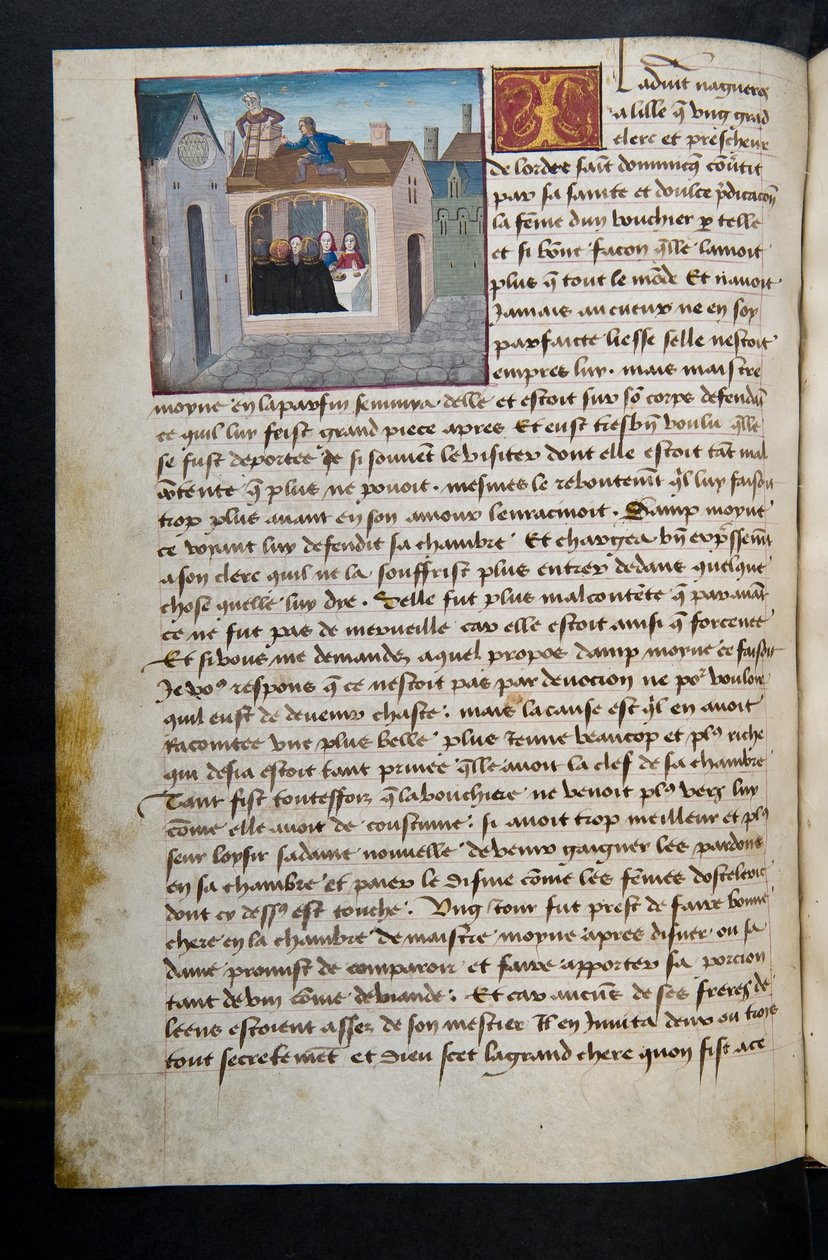 I L advint nagueres
a lille q̃ ung grãd
clerc et prescheur
de lordre saĩt dominicq̃ cõv̾tit
par sa sainte et doulce p̃dicacõn
la fẽme dun bouchier p̱ telle
et si bõne facon q̃lle lamoit
plus q̃ tout le mõde Et navoit
Jamais au cueur ne en soy
parfaicte liesse selle nestoit
empres luy . mais maistre
moyne en laparfin sennuya delle et estoit sur sõ corps
ce quil luy feist grand piece apres Et eust tresbñ voulu q̃lle
se fust deportee de si souvẽt le visiter dont elle estoit tãt mal
cõtente q̃ plus ne povoit . mesmes le reboutem̃t q̃l luy faisoit
trop plus avant en son amour lenracinoit . Damp moyne
ce voyant luy defendit sa chambre Et chargea bñ exp̃ssemẽt
a son clerc quil ne la souffrist plus entrer dedans quelque
chose quelle luy dye . Selle fut plus malcontẽte q̃ par avãt
ce ne fut pas de merveille car elle estoit ainsi q̃ forcenee
Et si vous me demandez a quel propos damp moyne ce faisoit
Je voꝰ respons q̃ ce nestoit pas par devocion ne poʳ vouloir
quil eust de devenir chaste : mais la cause est q̃l en avoit
Racointee une plus belle plus Jeune beaucop et plꝰ riche
qui desia estoit tant privee q̃lle avoit la clef de sa chambre
Tant fist touteffoiz q̃ la bouchiere ne venoit plꝰ vers luy
cõme elle avoit de coustume : si avoit trop meilleur et plꝰ
seur loysir sa dame nouvelle de venir gaigner les pardons
en sa chambre et paier le disme cõme les fẽmes dostelerie
dont cy dessꝰ est touche : Ung Jour fut prest de faire bonne
chere en la chambre de maistre moyne apres disner ou sa
dame promist de comparoir et faire apporter sa porcion
tant de vin cõme de viande : Et car aucũs de ses freres de
leens estoient assez de son mestier Il en Invita deux ou trois
tout secretemẽt et dieu scet la grand chere quon fist a ce